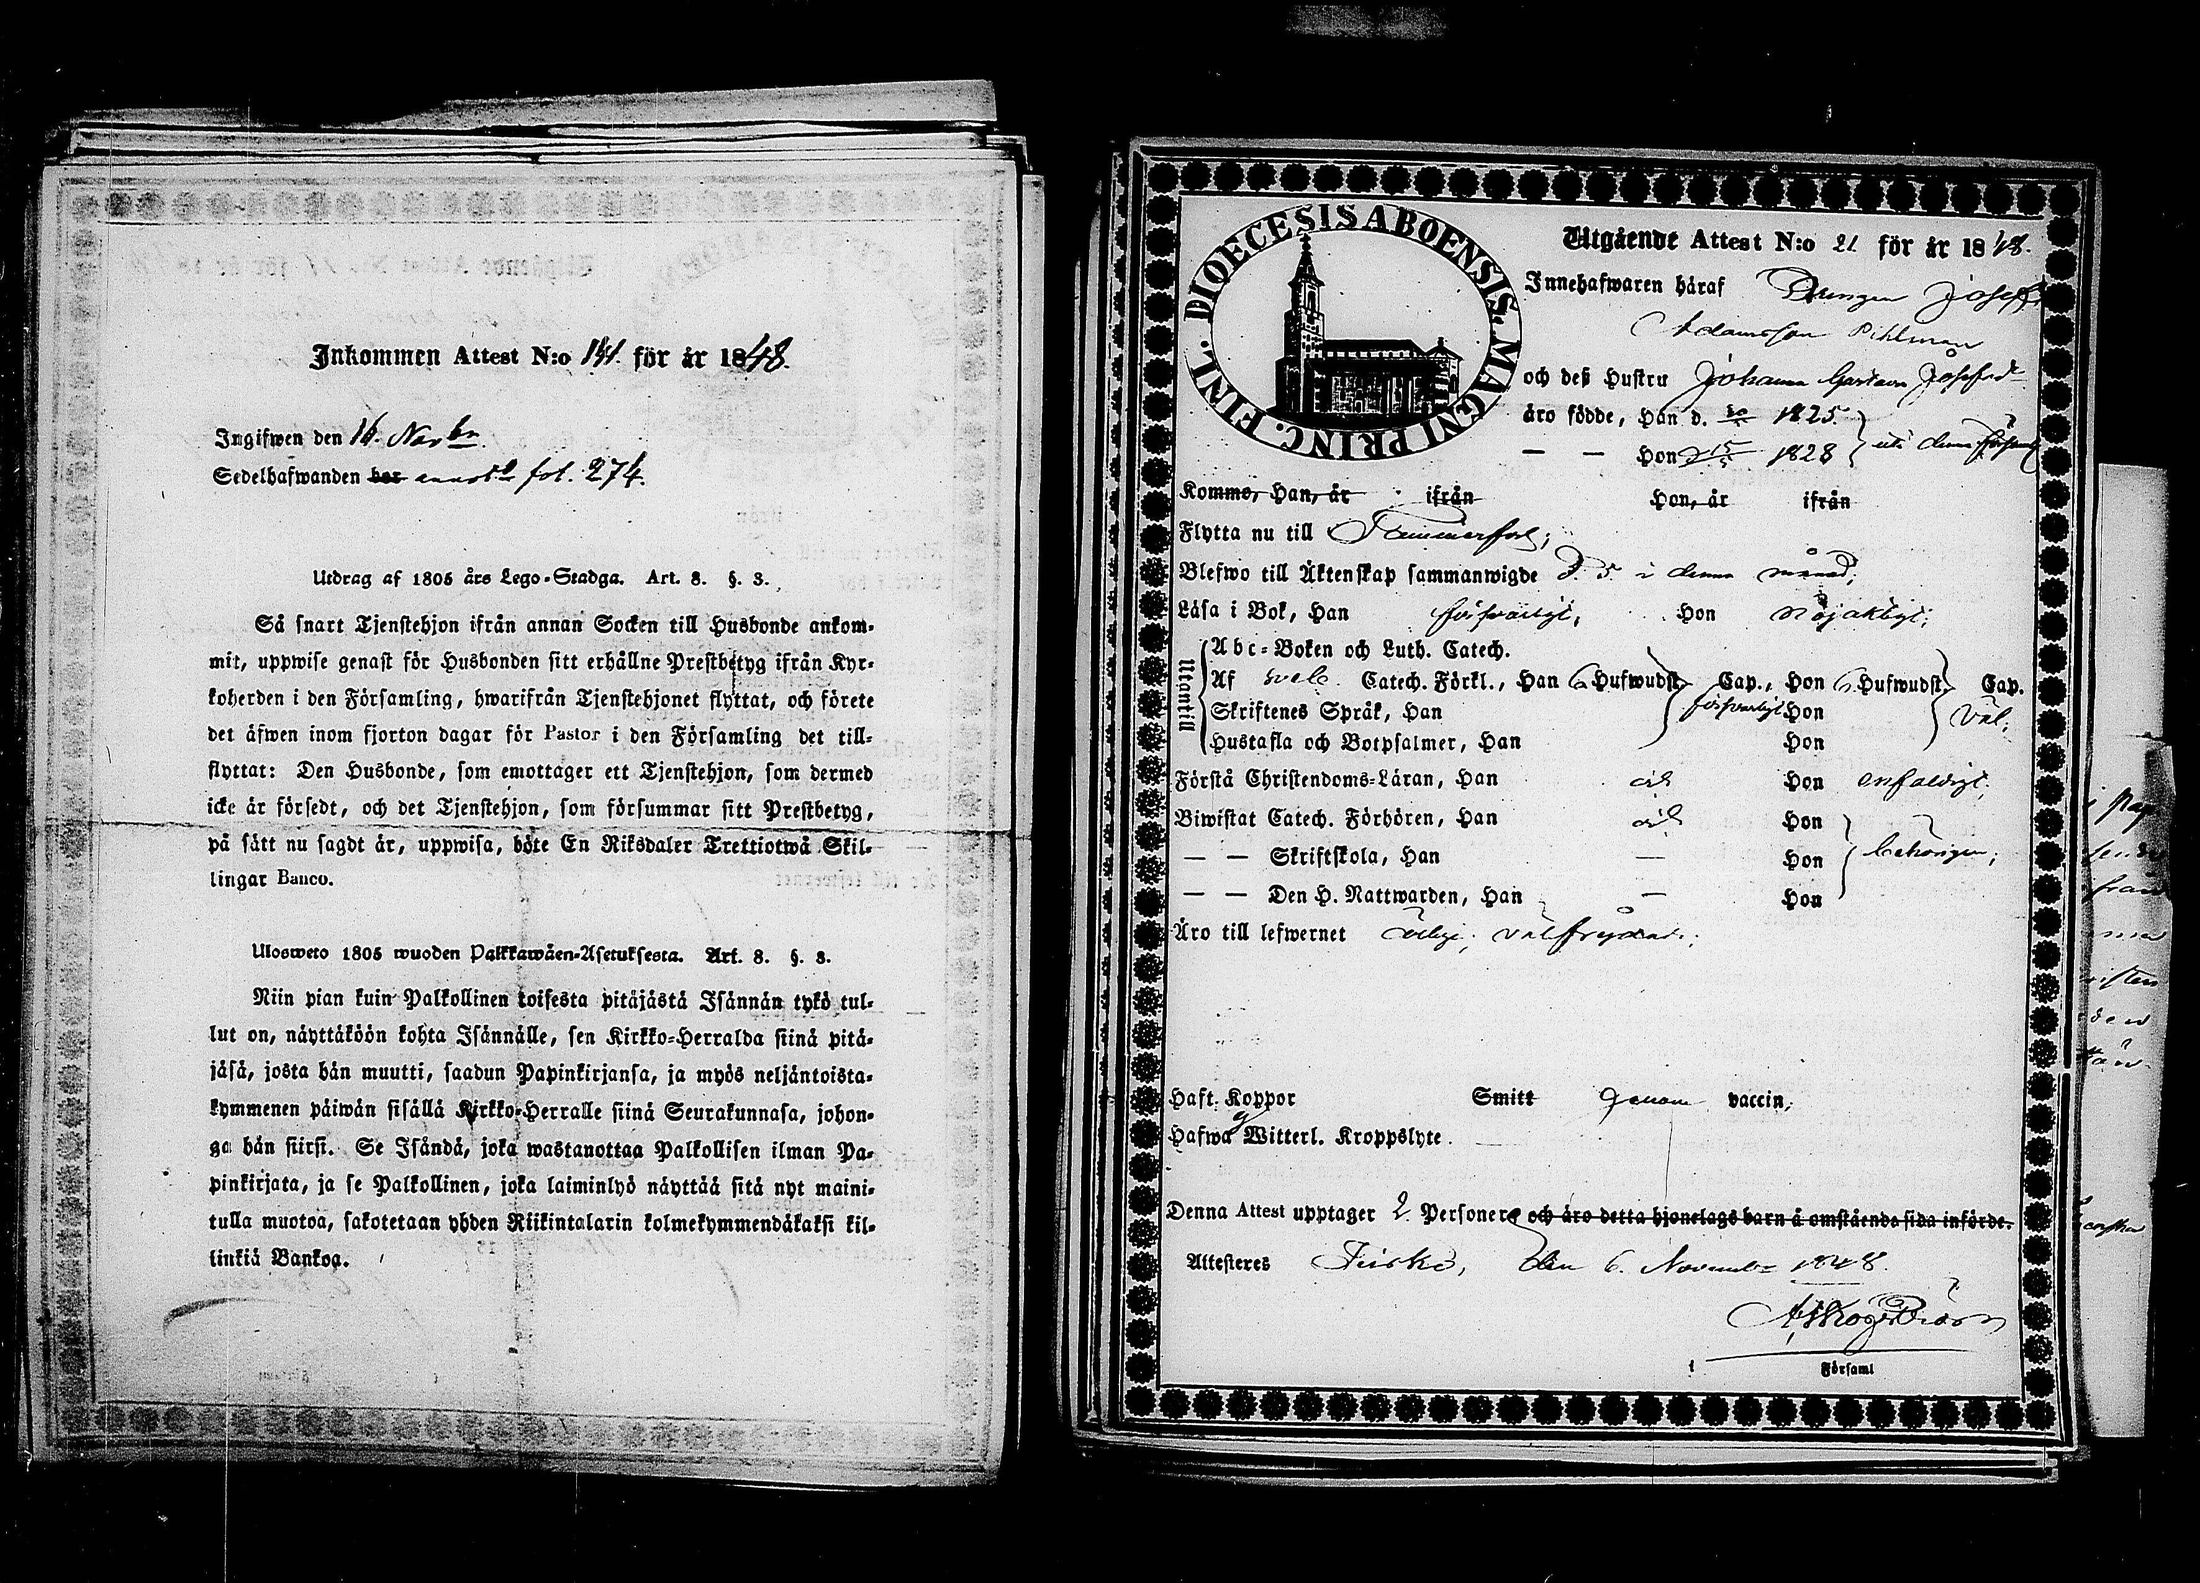 Inkommen Attest N:o 141. för år 1848.
Ingifwen den 16. Novbr
Sedelhafwanden har annot. fol. 274.
Utdrag af 1805 års Lego-Stadga. Art. 8. §. 3.
Så snart Tjenstehjon ifrån annan Socken till Husbonde ankom-
mit, uppwise genast för Husbonden sitt erhållne Prestbetyg ifrån Kyr-
koherden i den Församling, hwarifrån Tjenstehjonet flyttat, och förete
det äfwen inom fjorton dagar för Pastor i den Församling det till-
flyttat: Den Husbonde, som emottager ett Tjenstehjon, som dermed
icke är försedt, och det Tjenstehjon, som försummar sitt Prestbetyg,
på sätt nu sagdt är, uppwisa, böte En Riksdaler Trettiotwå Skil-
lingar Banco.
Ulosweto 1805 wuoden Palkkawäen-Asetuksesta. Art. 8. §. 3.
Niin pian kuin Palkollinen toisesta pitäjästä Isännän tykö tul-
lut on, näyttäköön kohta Isännälle, sen Kirkko-Herralda siinä pitä-
jäsä, josta hän muutti, saadun Papinkirjansa, ja myös neljäntoista-
kymmenen päiwän sisällä Kirkko-Herralle siinä Seurakunnasa, johon-
ga hän siirsi. Se Isändä, joka wastanottaa Palkollisen ilman Pa-
pinkirjata, ja se Palkollinen, joka laiminlyö näyttää sitä nyt maini-
tulla muotoa, sakotetaan yhden Riikintalarin kolmekymmendäkaksi kil-
linkiä Bankoa.
DIOECESIS ABOENSIS. MAGNI PRINC. FINL.
Utgående Attest N:o 21 för år 1848.
Innehafwaren häraf Drengen Josef
Adamsson Pihlman
och deß Hustru Johanna Gustava Josefsdr
äro födde, Han d. 1825.
— — Hon d. 15 1828 uti denna församl.
Kommo, Han, år ifrån Hon, år ifrån
Flytta nu till Tammerfors;
Blefwo till Äktenskap sammanwigde d. 5. i denna månad;
Läsa i Bok, Han försvarligt, Hon nöjaktigt;
Utantill
Abc-Boken och Luth. Catech.
Af Sveb. Catech. Förkl., Han 6 Hufwudst. Cap., Hon 6. Hufwudst. Cap.
Skriftenes Språk, Han försvarligt Hon väl;
Hustafla och Botpsalmer, Han Hon
Förstå Christendoms-Läran, Han Hon enfaldigt;
Biwistat Catech. Förhören, Han Hon
— — Skriftskola, Han — Hon behörigen;
— — Den H. Nattwarden, Han — Hon
Äro till lefwernet ärlige, välfrejdade;
Haft Koppor Smitt genom vaccin;
Hafwa ej Witterl. Kroppslyte.
Denna Attest upptager 2. Personer och äro detta hjonelags barn å omstående sida införde.
Attesteres den 6. November 1848.
i Församl